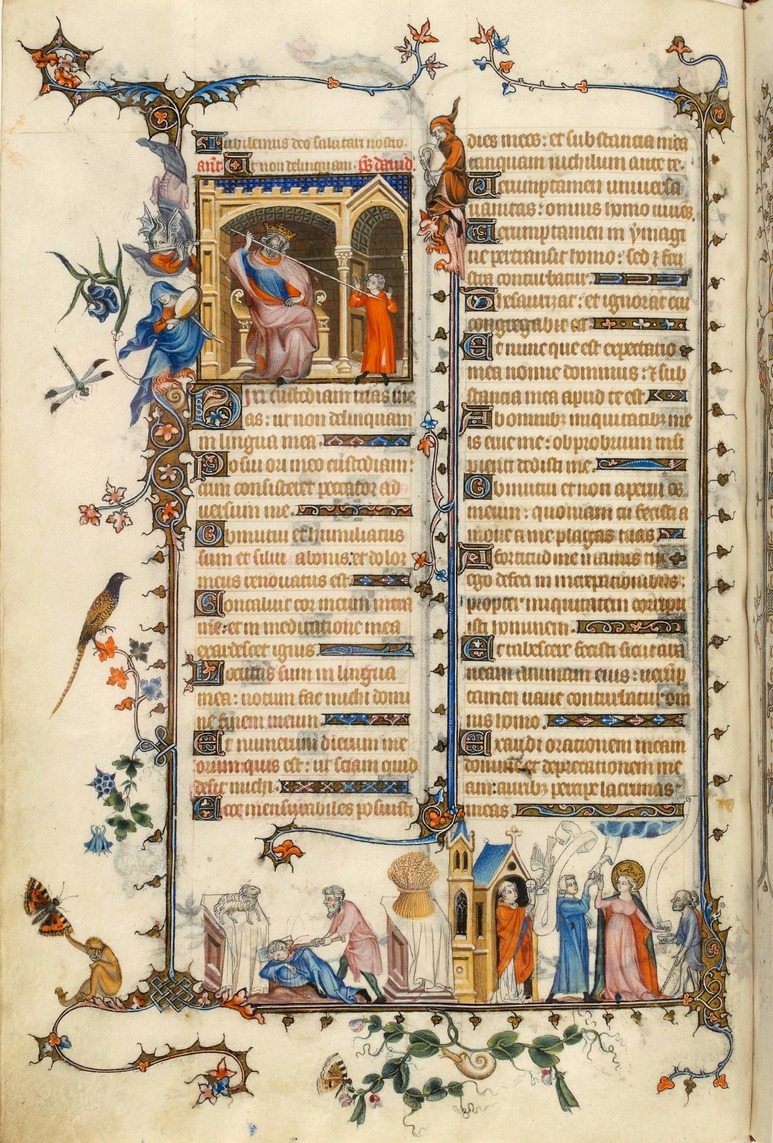 Iubilemus deo salutari nostro.
ant. Ut non delinquam. ps david.
Dixi custodiam uias me
as: ut non delinquam
in lingua mea.
Posui ori meo custodiam:
cum consisteret peccator ad
uersum me.
Obmutui et humiliatus
sum et silui a bonis: et dolor
meus renouatus est
Concaluit cor meum intra
me: et in meditatione mea
exardescet ignis
Locutus sum in lingua
mea: notum fac michi domi
ne finem meum
Et numerum dierum me
orum quis est: ut sciam quid
desit michi.
Ecce mensurabiles posuisti
dies meos: et substancia mea
tanquam nichilum ante te.
Uerumptamen uniuersa
uanitas: omnis homo uiuens.
Uerumptamen in ymagi
ne pertransit homo: sed et frus
tra conturbatur.
Thesaurizat: et ignorat cui
congregabit ea
Et nunc que est expectatio
mea nonne dominus: et sub
stancia mea apud te est
Ab omnibus iniquitatibus me
is erue me: obprobrium insi
pienti dedisti me.
Obmutui et non aperui os
meum: quoniam tu fecisti a
moue a me plagas tuas
A fortitudine manus tue
ego defeci in increpationibus:
propter iniquitatem corripu
isti hominem.
Et tabescere fecisti sicut ara
neam animam eius: uerump
tamen uane conturbatur om
nis homo.
Exaudi orationem meam
domine et deprecationem me
am: auribus percipe lacrimas
meas